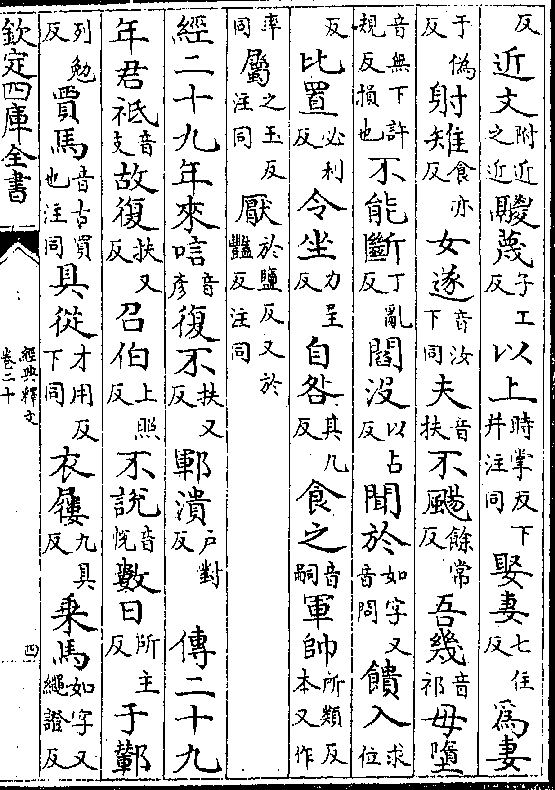 反近文附近之近鬷蔑子工反以上時掌反下并注同娶妻七住反爲妻
于偽反射雉食亦反女遂音汝下同夫音扶不颺餘常反吾幾音祁毋墮
音無下許規反損也不能斷丁亂反閻沒以占反聞於如字又音問饋入求位
反比置必利反令坐力呈反自咎其九反食之音嗣軍帥所類反本又作
率同屬之玉反注同厭於鹽反又於豔反注同
經二十九年來唁音彥復不扶又反鄆潰戶對反傳二十九
年君祗音支故復扶又反召伯上照反不說音悅數日所主反于鄻
列勉反賈馬音古買也注同具從才用反下同衣屨九具反乘馬如字又繩證反
欽定四庫全書
經典釋文
卷二十
四